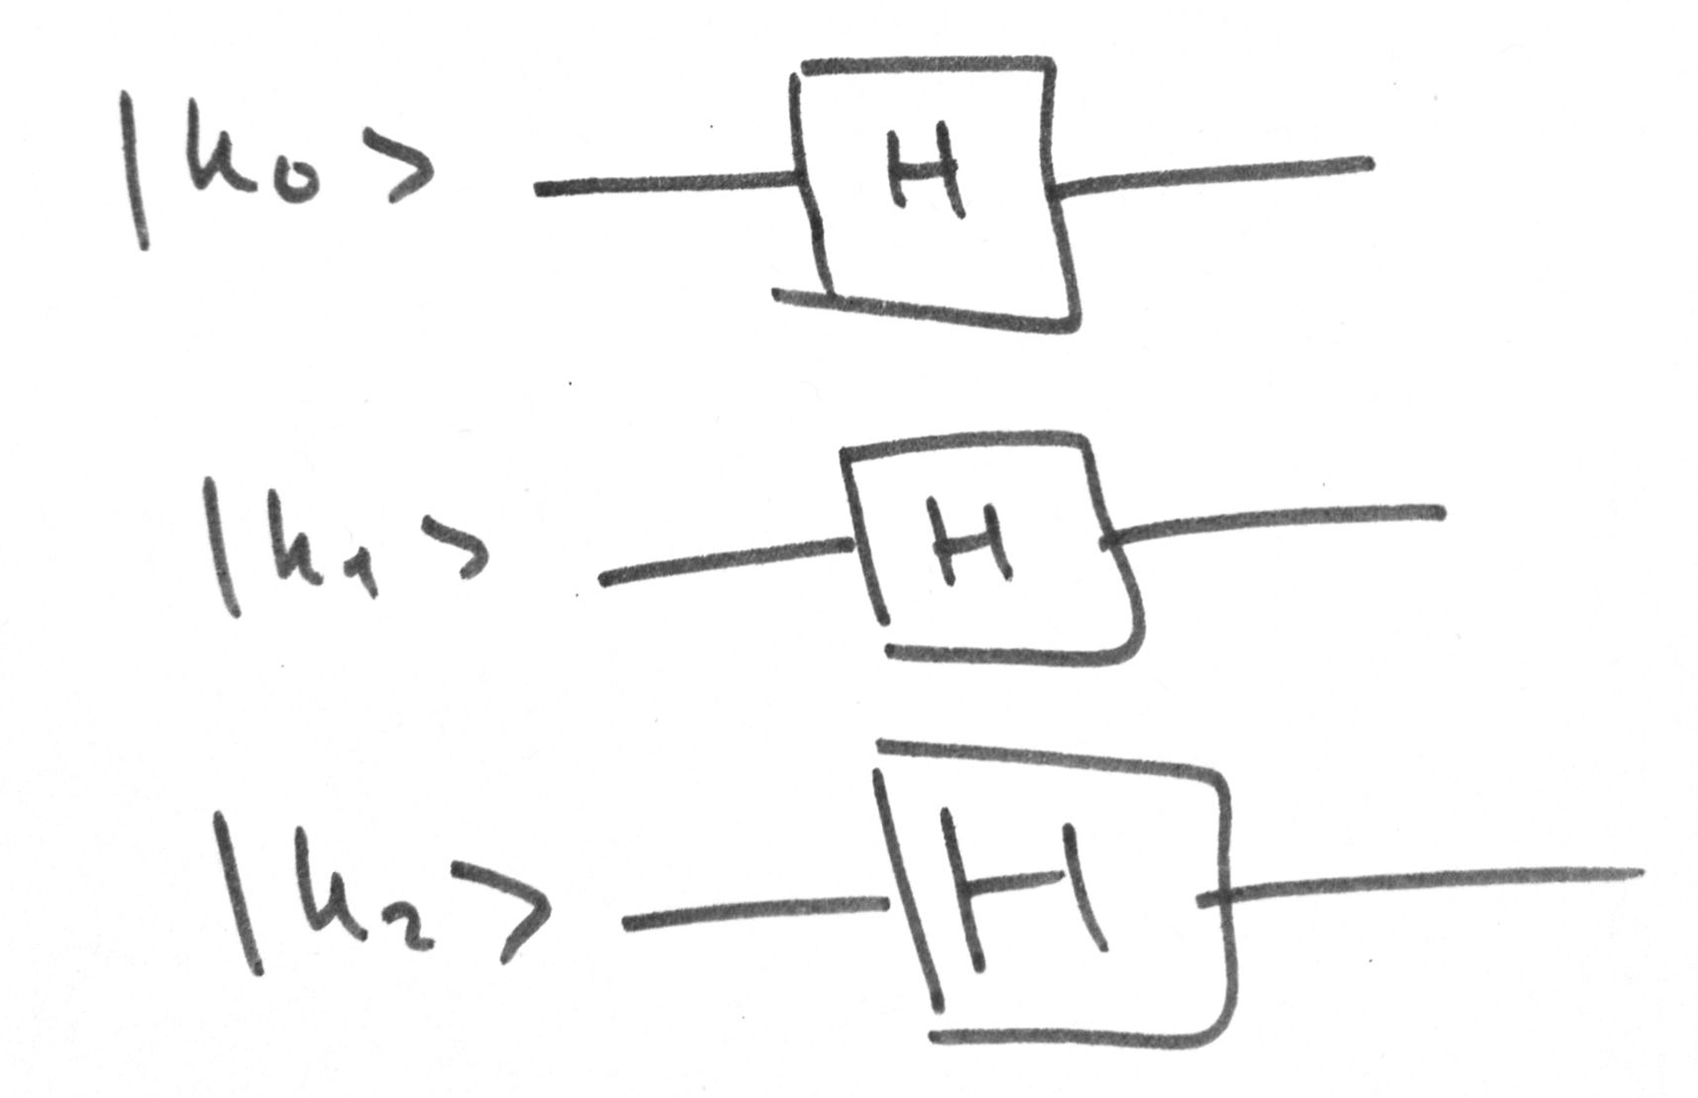 |k₀> H
|k₁> H
|k₂> H